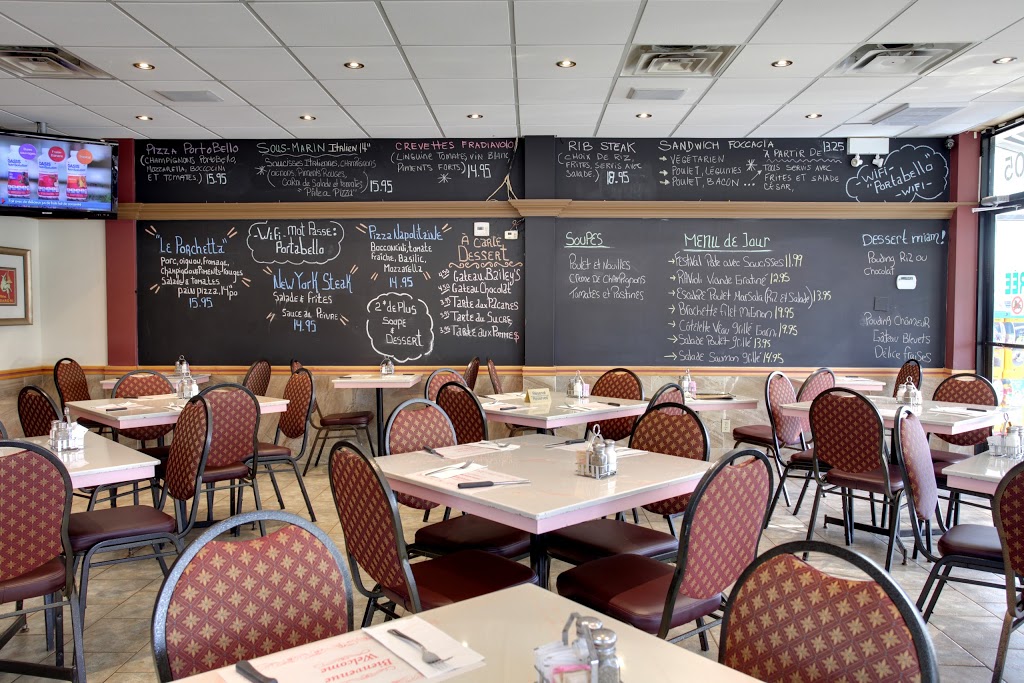 Pizza PortoBello
(CHAMPIGNONS PORTOBELLO,
MOZZARELLA, BOCCOCINI
ET TOMATES) 13.95
SOUS-MARIN Italien 14"
Saucisses Italiennes, champignons
oignons, Piments, fromage,
Salade et tomates,
"Pâte à Pizza" 15.95
CREVETTES FRADIAVOLO
(LINGUINE TOMATES, VIN BLANC,
PIMENTS FORTS) 14.95
RIB STEAK
(CHOIX DE RIZ,
FRITES, SERVIS AVEC
SALADE) 18.95
SANDWICH FOCCACIA 13.25
→ VÉGÉTARIEN
→ POULET, LÉGUMES
→ POULET, BACON...
* À PARTIR DE
TOUS SERVIS AVEC
FRITES ET SALADE
CÉSAR,
WIFI-
"Portabello"
-WIFI-
"Le Porchetta"
Porc, oignon, fromage,
champignons, Piments-rouges
Salade & tomates
pain pizza, 14po
15.95
-Wifi- Mot Passe:
Portabello
NEW YORK STEAK
Salade & Frites
Sauce au Poivre
14.95
Pizza Napolitaine
Bocconcini, tomate
Fraîche, Basilic,
Mozzarella
14.95
2$ de Plus
Soupe
&
Dessert
À CARTE
DESSERT
Gateau Bailey's
Gateau Chocolat
Tarte aux Pacanes
Tarte au Sucre
Tarte aux Pommes
SOUPES
Poulet et Nouilles
Crème de Champignons
Tomates et Pastines
MENU de Jour
→ Festival Pate avec Saucisses 11.99
→ Ravioli Viande Gratiné 12.95
→ Escalope Poulet Marsala (Riz et Salade) 13.95
→ Brochette filet mignon 19.95
→ Côtelette Veau grillé Garni 19.95
→ Salade Poulet grillé 13.95
→ Salade Saumon grillé 14.95
Dessert miam!
Pouding Riz ou
Chocolat
Pouding Chômeur
Gâteau Bleuets
Délice fraises
Bienvenue
Welcome